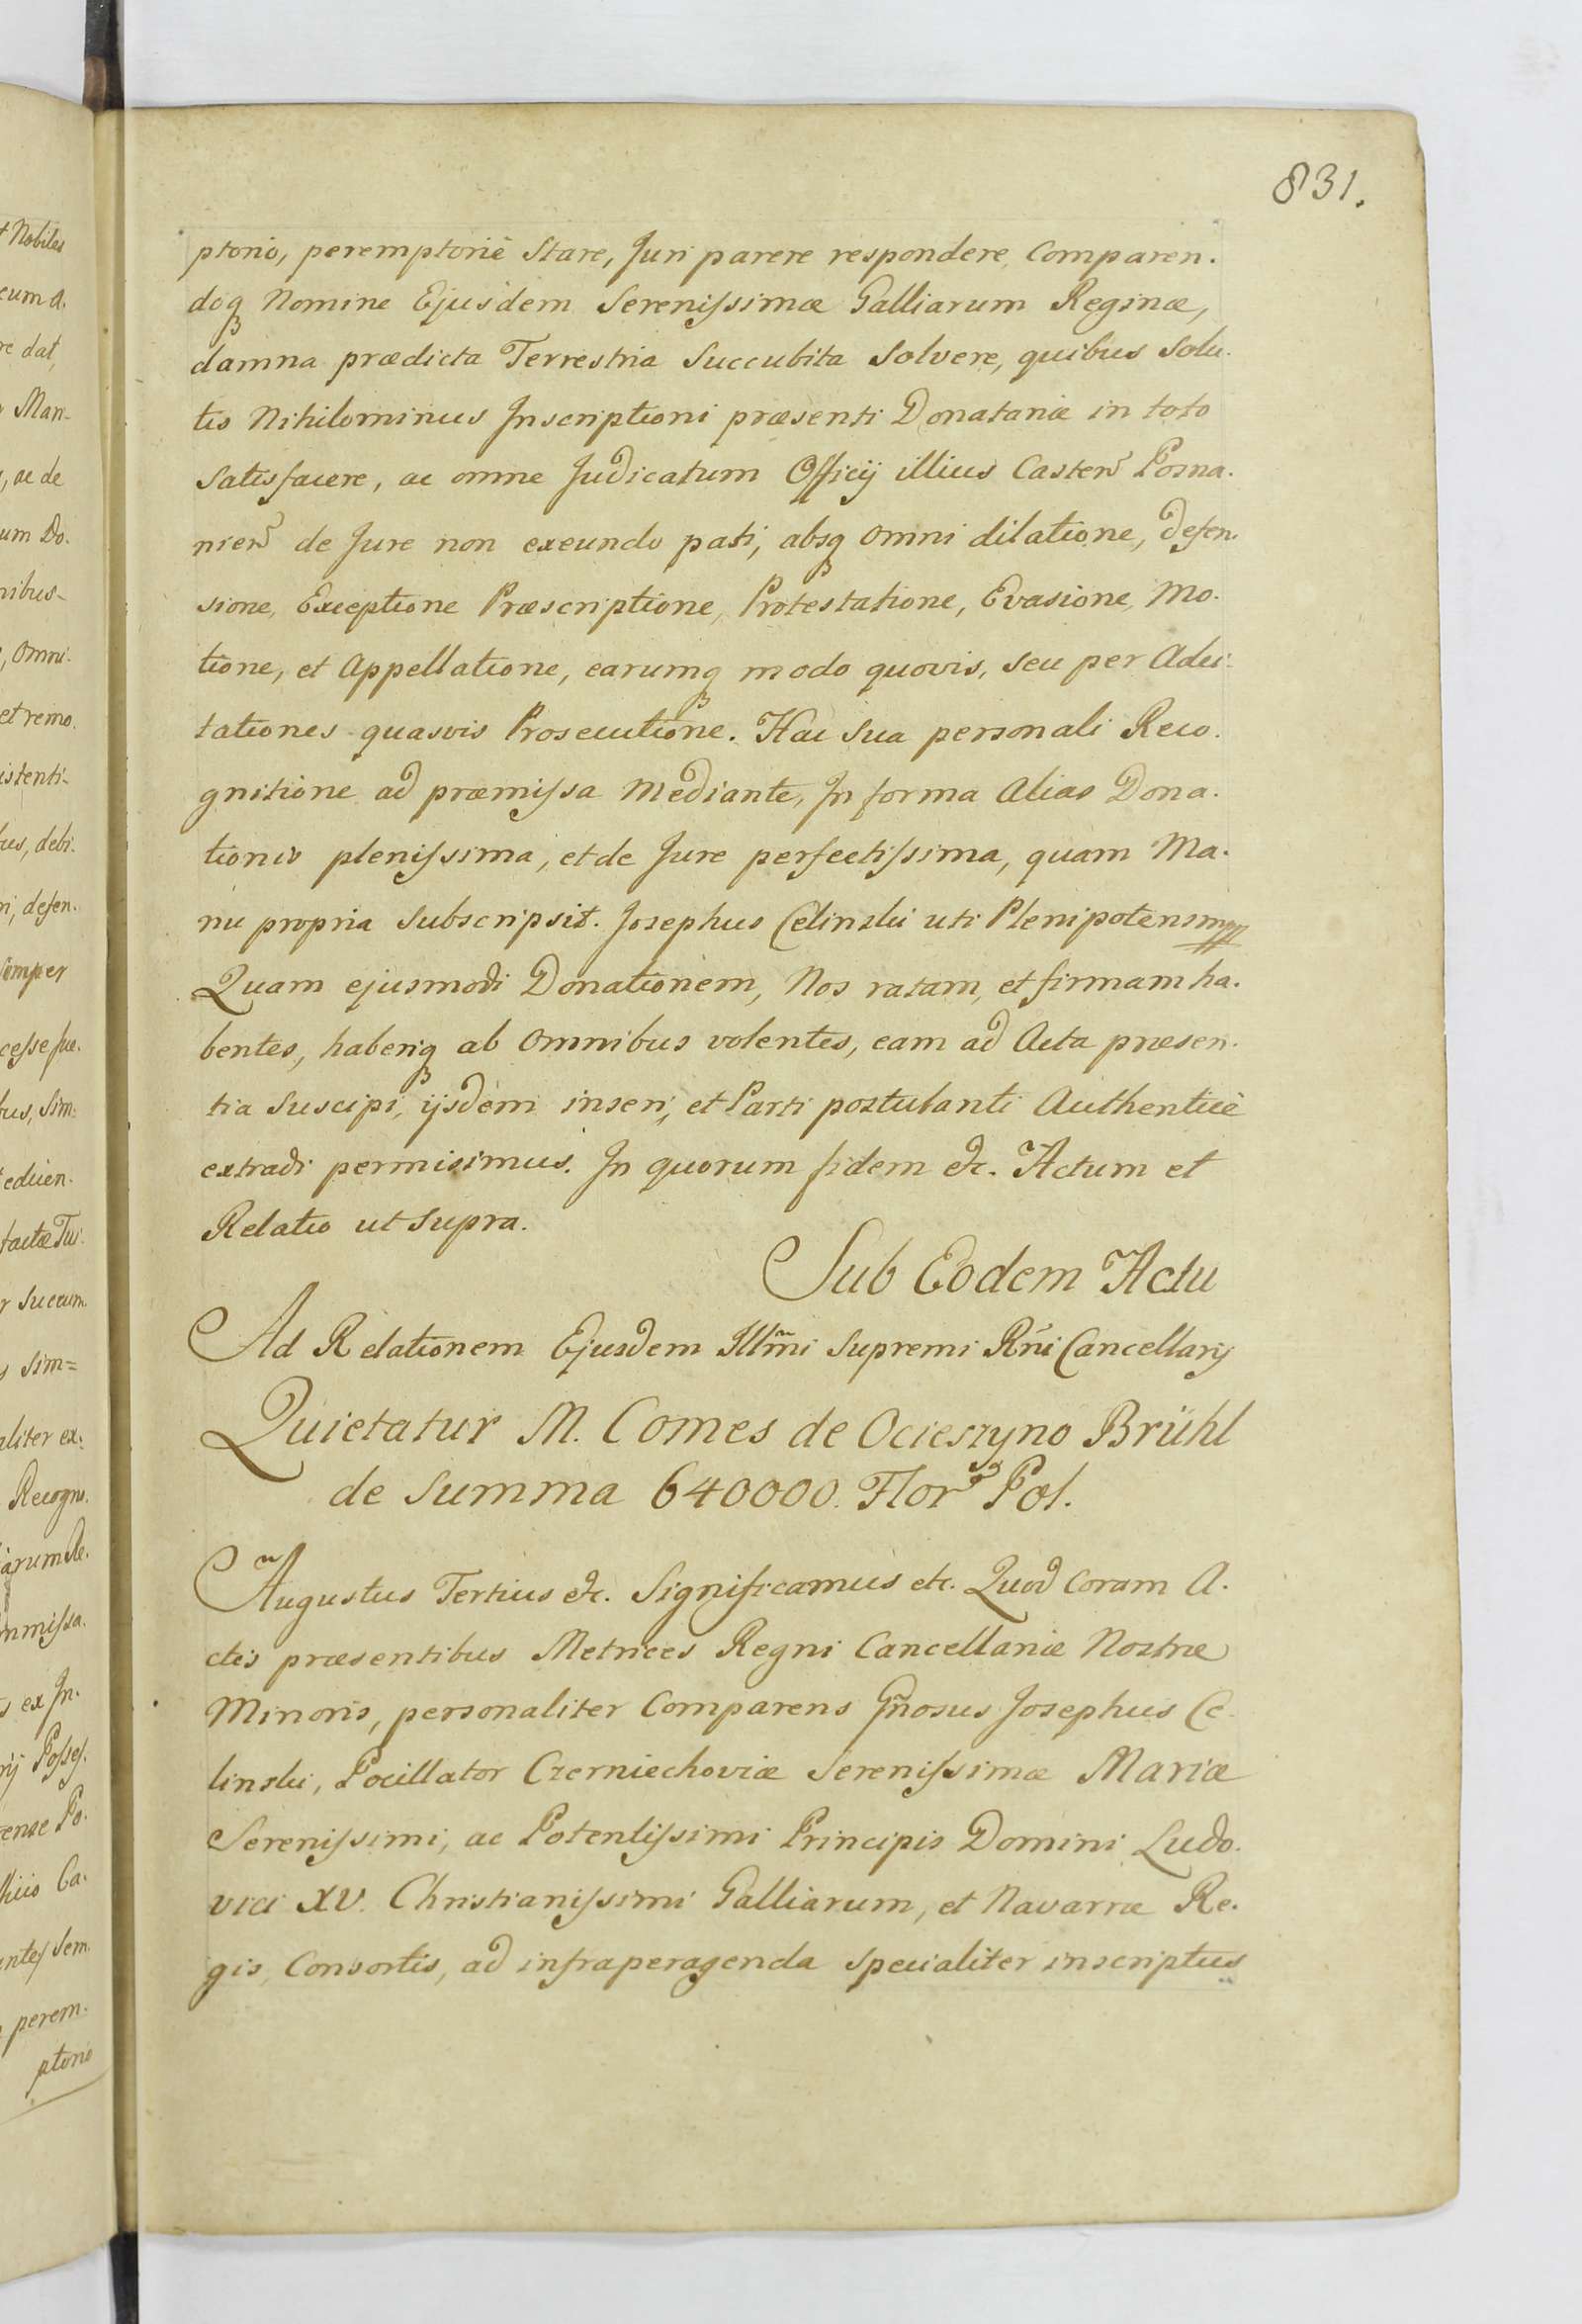 831.
ptorio, peremptoriè Stare, Juri parere respondere, Comparen.
doq3 Nomine Ejusdem Serenissimæ Galliarum Reginæ,
damna prædicta Terrestria Succubita Solvere, quibus Solu.
tis Nihilominus Inscriptioni præsenti Donatariæ in toto
Satisfacere, ac omne Judicatum Officij illius Castren Posna.
nien de Jure non exeundo pati, absq3 omni dilatione, defen.
sione, Exceptione Præscriptione, Protestatione, Evasione, Mo.
tione, et Appellatione, earumq3 modo quovis, seu per Adci.
tationes quasvis Prosecutione. Hac Sua personali Reco.
gnitione ad præmissa Mediante, In forma Alias Dona.
tionis plenissima, et de Jure perfectissima, quam Ma.
nu propria Subscripsit. Josephus Celinski uti Plenipotens mpp
Quam ejusmodi Donationem, Nos ratam, et firmam ha.
bentes, haberiq3 ab Omnibus volentes, eam ad Acta præsen.
tia Suscipi, ijsdem inseri, et Parti postulanti Authenticè
extradi permisimus. In quorum fidem &c. Actum et
Relatio ut Supra.
Sub Eodem Actu
Ad Relationem Ejusdem Illm̃i Supremi Rñi Cancellarij
Quietatur M. Comes de Ocieszyno Brühl
de Summa 640000. Flor Pol.
Augustus Tertius &c. Significamus etc. Quod Coram A.
ctis præsentibus Metrices Regni Cancellariæ Nostræ
Minoris, personaliter Comparens Gñosus Josephus Ce.
linski, Pocillator Czerniechoviæ Serenissimæ Mariæ
Serenissimi, ac Potentissimi Principis Domini Ludo.
vici XV. Christianissimi Galliarum, et Navarræ Re.
gis, Consortis, ad infraperagenda Specialiter inscriptus